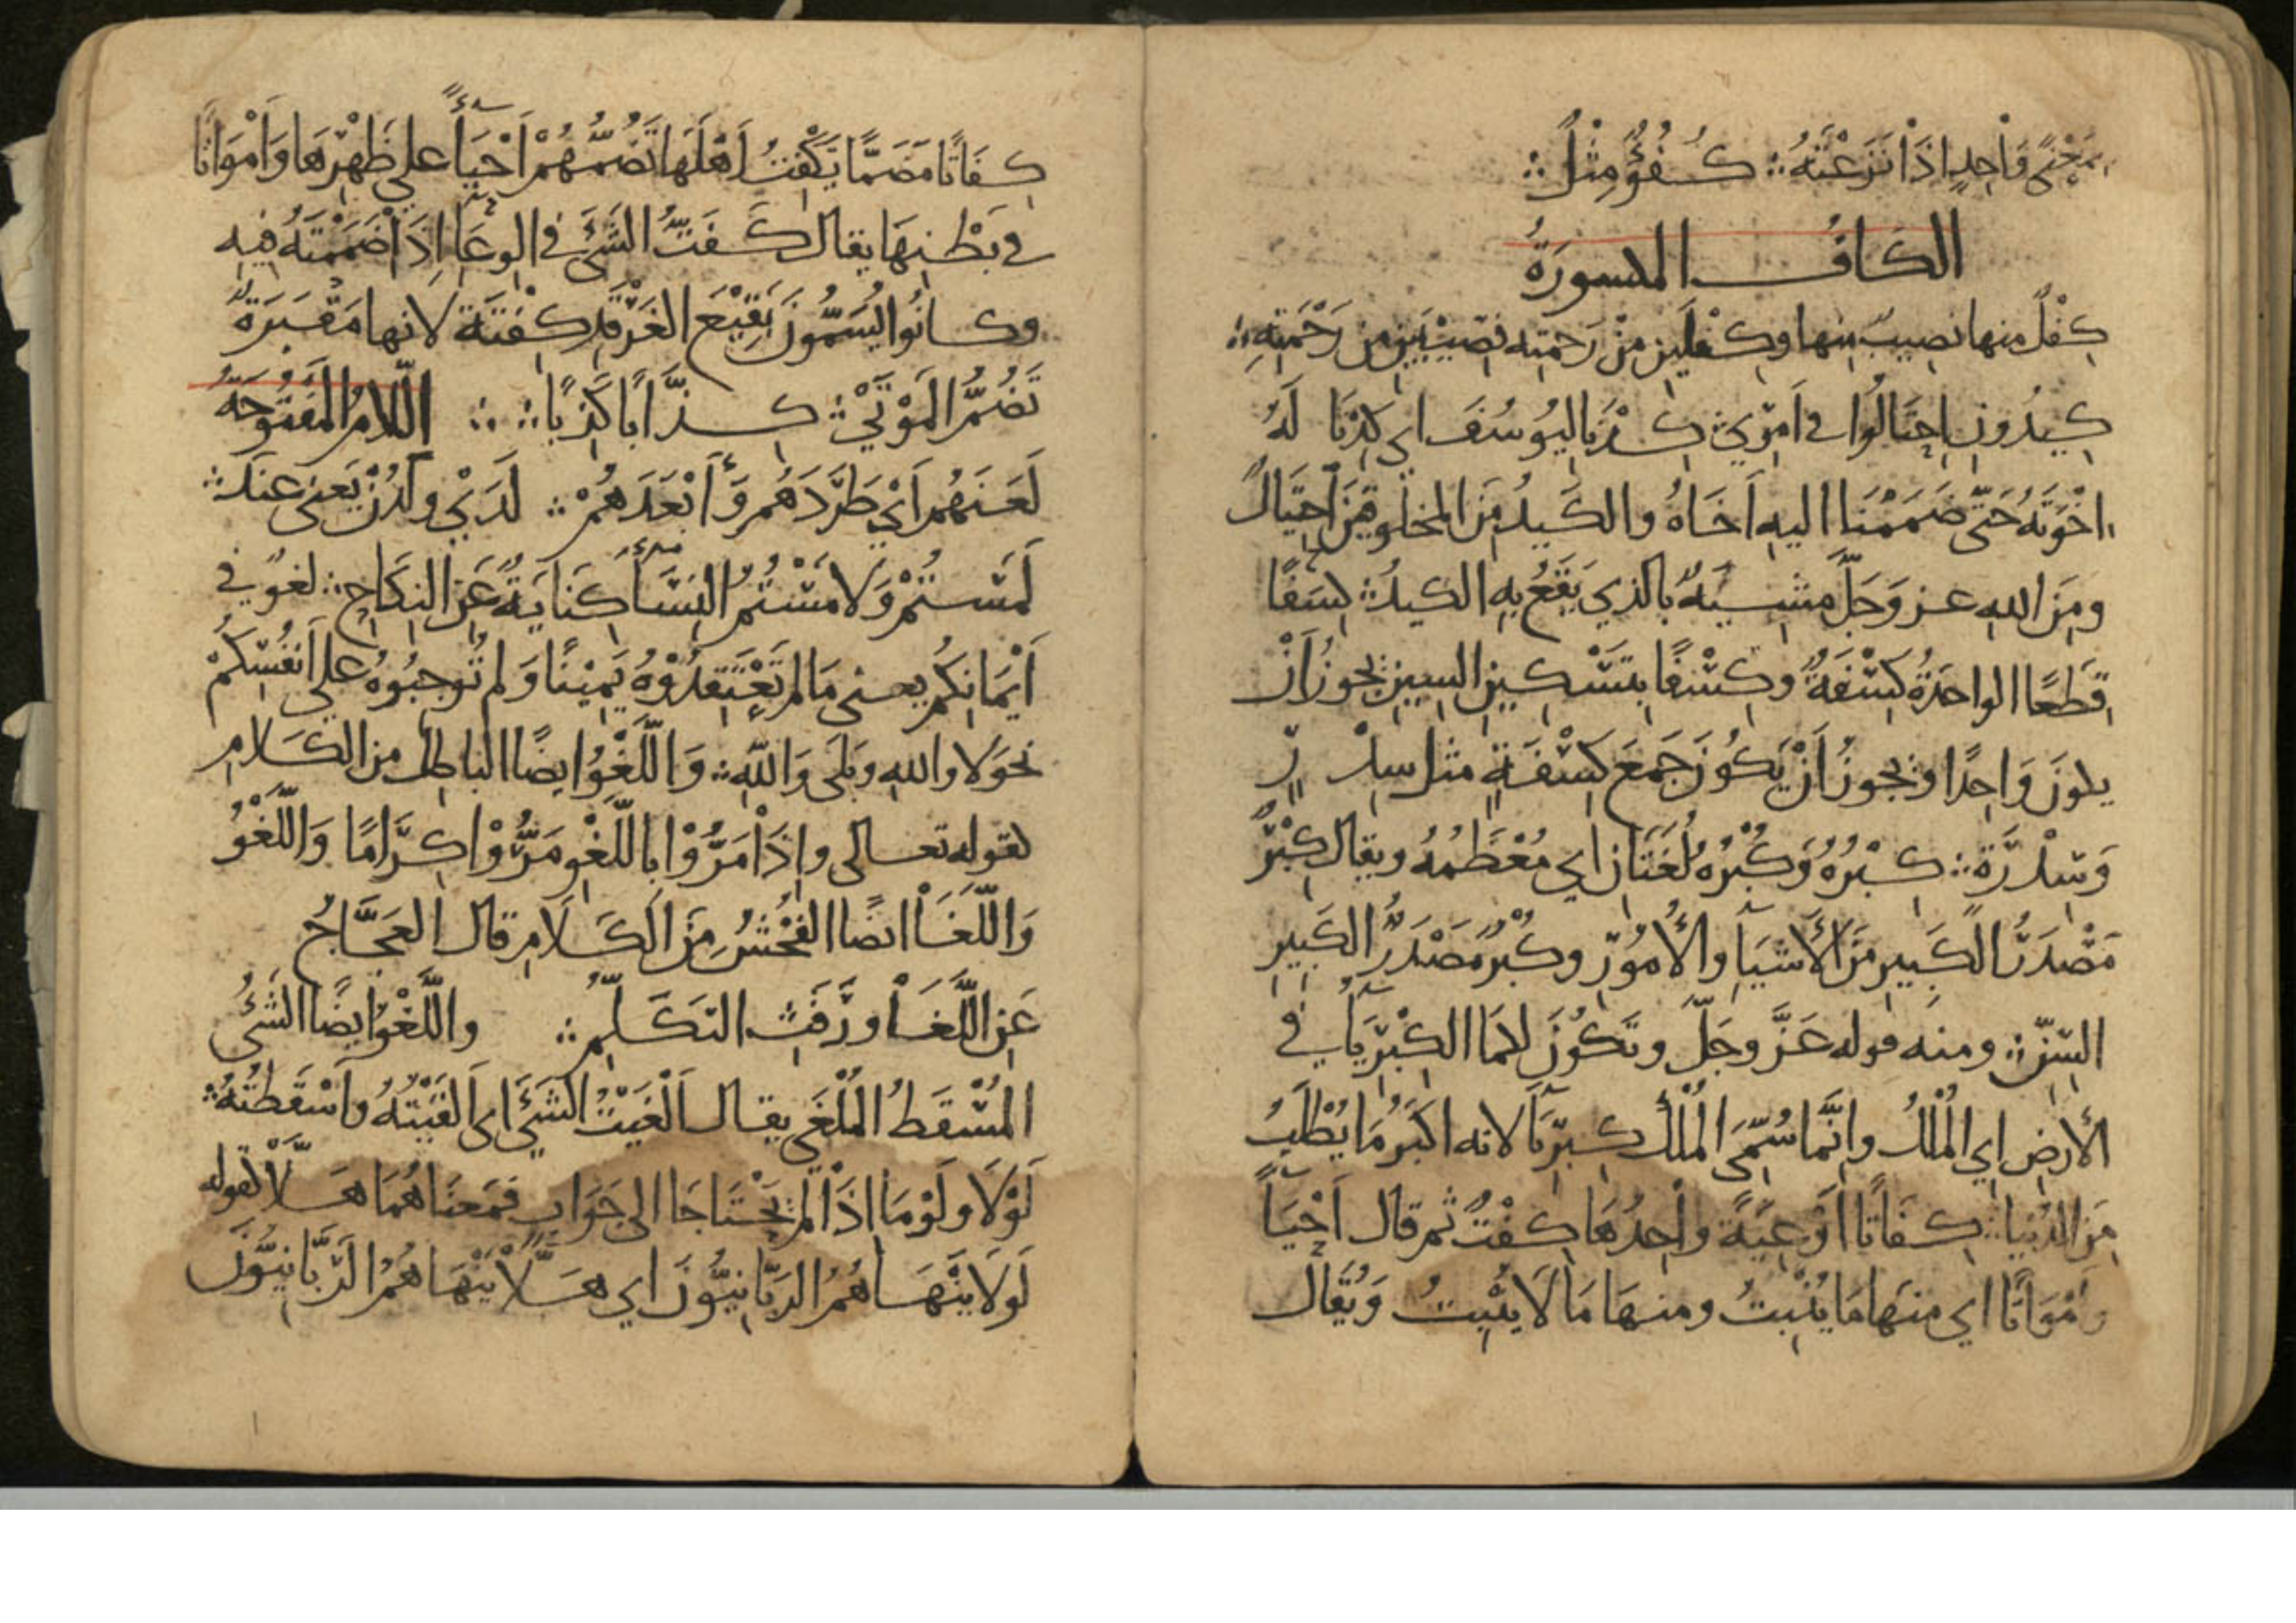 بمَعْنًى وَاحِدٍ اذَا نَزَعْتَهُ ؞ كُفُؤٌ مِثْلٌ ؞
الكَافُ المكسورَةُ
كِفْلٌ منها نصِيبٌ منها وكِفْلَيْنِ مِنْ رَحمتِه نصِيبَيْنِ مِن رَحْمَتِهِ ؞
كِيدُونِ احْتَالُوا في اَمْرِي ؞ كِدْنَا لِيُوسُفَ اي كِدْنَا لَهُ
اخْوَتَهُ حَتَّى ضَمَمْنَا اليهِ اَخَاهُ والكَيدُ مِنَ المخلُوقِينَ احتِيَالٌ
ومِنَ اللهِ عز وَجَلَّ مَشِيَّةٌ بالذي يَقَعُ بِهِ الكيدُ ؞ كِسَفًا
قِطَعًا الواحدَةُ كِسْفَةٌ وكِسْفًا بتَسْكِينِ السِينِ يجُوزُ اَنْ
يكونَ وَاحِدًا ويجُوزُ اَنْ يَكُونَ جَمْعَ كِسْفَةٍ مثل سِدْرٍ
وَسِدْرَةٍ ؞ كِبْرُهُ وَكُبْرُهُ لُغَتَانِ اي مُعْظَمُهُ ويقال كِبْرٌ
مَصْدَرُ الكَبِيرِ مِنَ الأَشيَآءِ والأُمُورِ وكُبْرٌ مَصْدَرُ الكَبِيرِ
السِنِّ ؞ ومنه قوله عَزَّ وجَلَّ وتَكُونَ لكمَا الكِبْرِيَآءُ في
الأرضِ اي المُلْكُ وانَّمَا سُمِّيَ المُلْكُ كِبْرِيَآءَ لانه اكبَرُ مَا يُطْلَبُ
مِنَ الدُنيَا ؞ كِفَاتًا اَوْعِيَةً واحِدُهَا كِفْتٌ ثم قال اَحْيَآءً
وَاَمْوَاتًا اي منهَا مَا يُنْبِتُ ومنهَا مَا لَا يُنْبِتُ وَيُقَالُ
كِفَاتًا مَضَمًّا تَكْفِتُ اَهْلَهَا تَضُمُّهُمْ اَحْيَآءً على ظَهْرِهَا وَاَمْوَاتًا
في بَطْنِهَا يقال كَفَتُّ الشَيْءَ في الوِعَآءِ اِذَا ضَمَمْتَهُ فِيهِ
وكانُوا يُسَمُّونَ بَقِيْعَ الغَرْقَدِ كِفْتَةً لانها مَقْبَرَةٌ
تَضُمُّ المَوْتَى ؞ كِذَّابًا كَذِبًا ؞ ؞ اللَّامُ المَفْتُوحَةُ
لَعَنَهُم اَيْ طَرَدَهُم وَأَبْعَدَهُمْ ؞ لَدَيْ ولَدُنْ يَعنى عِنْدَ ؞
لَمَسْتُمْ وَلَامَسْتُمُ النِسَآءَ كِنَايَةٌ عَنِ النِكَاحِ ؞ لغو في
اَيْمَانِكُم يعنى مَا لم تَعْتَقِدُوْهُ يَمِيْنًا وَلم تُوجِبُوهُ على اَنفُسِكُمْ
نحوَ لا واللهِ وبَلَى وَاللهِ ؞ وَاللَّغْوُ ايضًا الباطل من الكَلَامِ
كقوله تعالى واِذَا مَرُّوْا باللَّغْوِ مَرُّوْا كِرَامًا وَاللَّغْوُ
وَاللَّغَا ايضًا الفُحْشُ مِنَ الكَلَامِ قال العَجَّاجُ
عَنِ اللَّغَا وَرَفَثِ التَكَلُّمِ ؞ واللَّغْوُ ايضًا الشَيْءُ
المُسْقَطُ المُلْغَى يقال اَلْغَيْتُ الشَيْءَ اى اَلقَيْتُهُ واَسْقَطتُهُ ؞
لَوْلَا ولَوْمَا اذَا لم يَحْتَاجَا الى جَوَابٍ فمَعنَاهُمَا هَلَّا كقوله
لَولَا يَنْهَاهُمُ الرَبَّانِيُّونَ اي هَلَّا يَنْهَاهُمُ الرَبَّانِيُّونَ